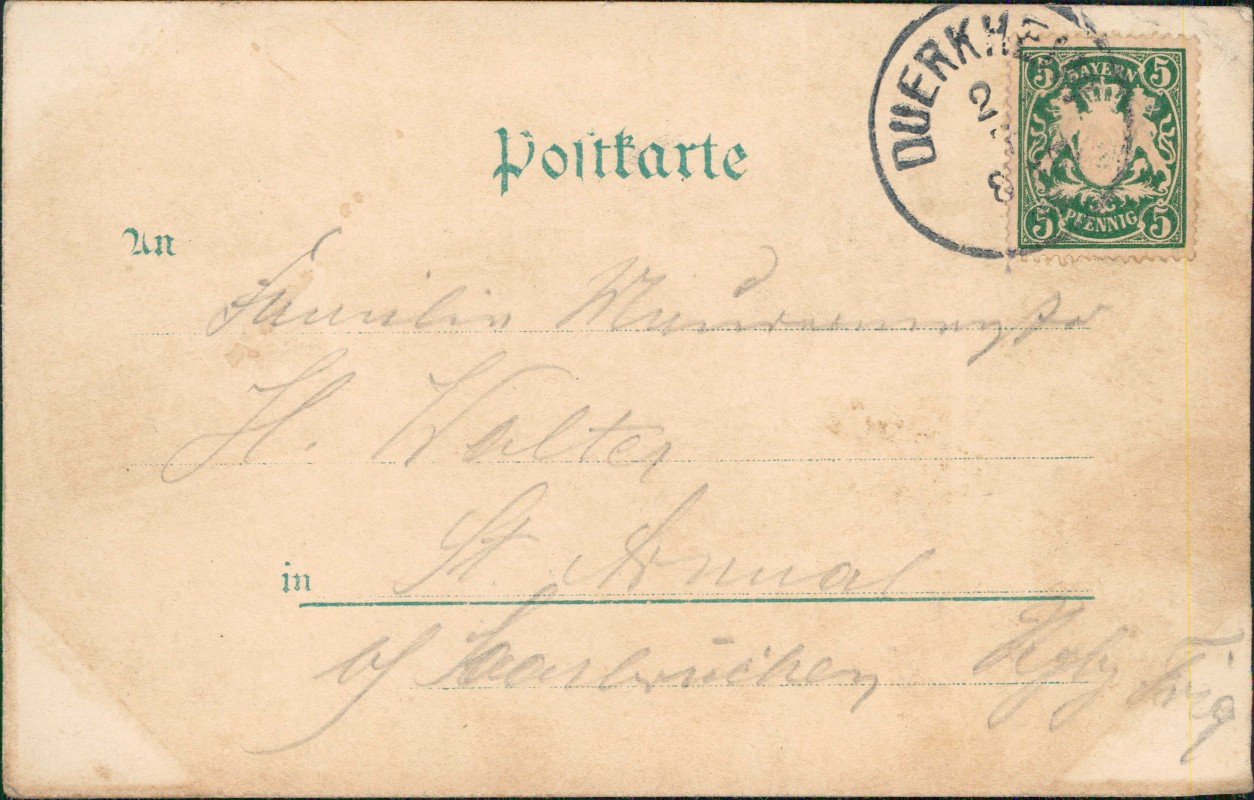 DUERKHEI
5 BAYERN 5
5 PFENNIG 5
Postkarte
An
Familie
H. Walter
in St. Arnual
b/ Saarbrücken